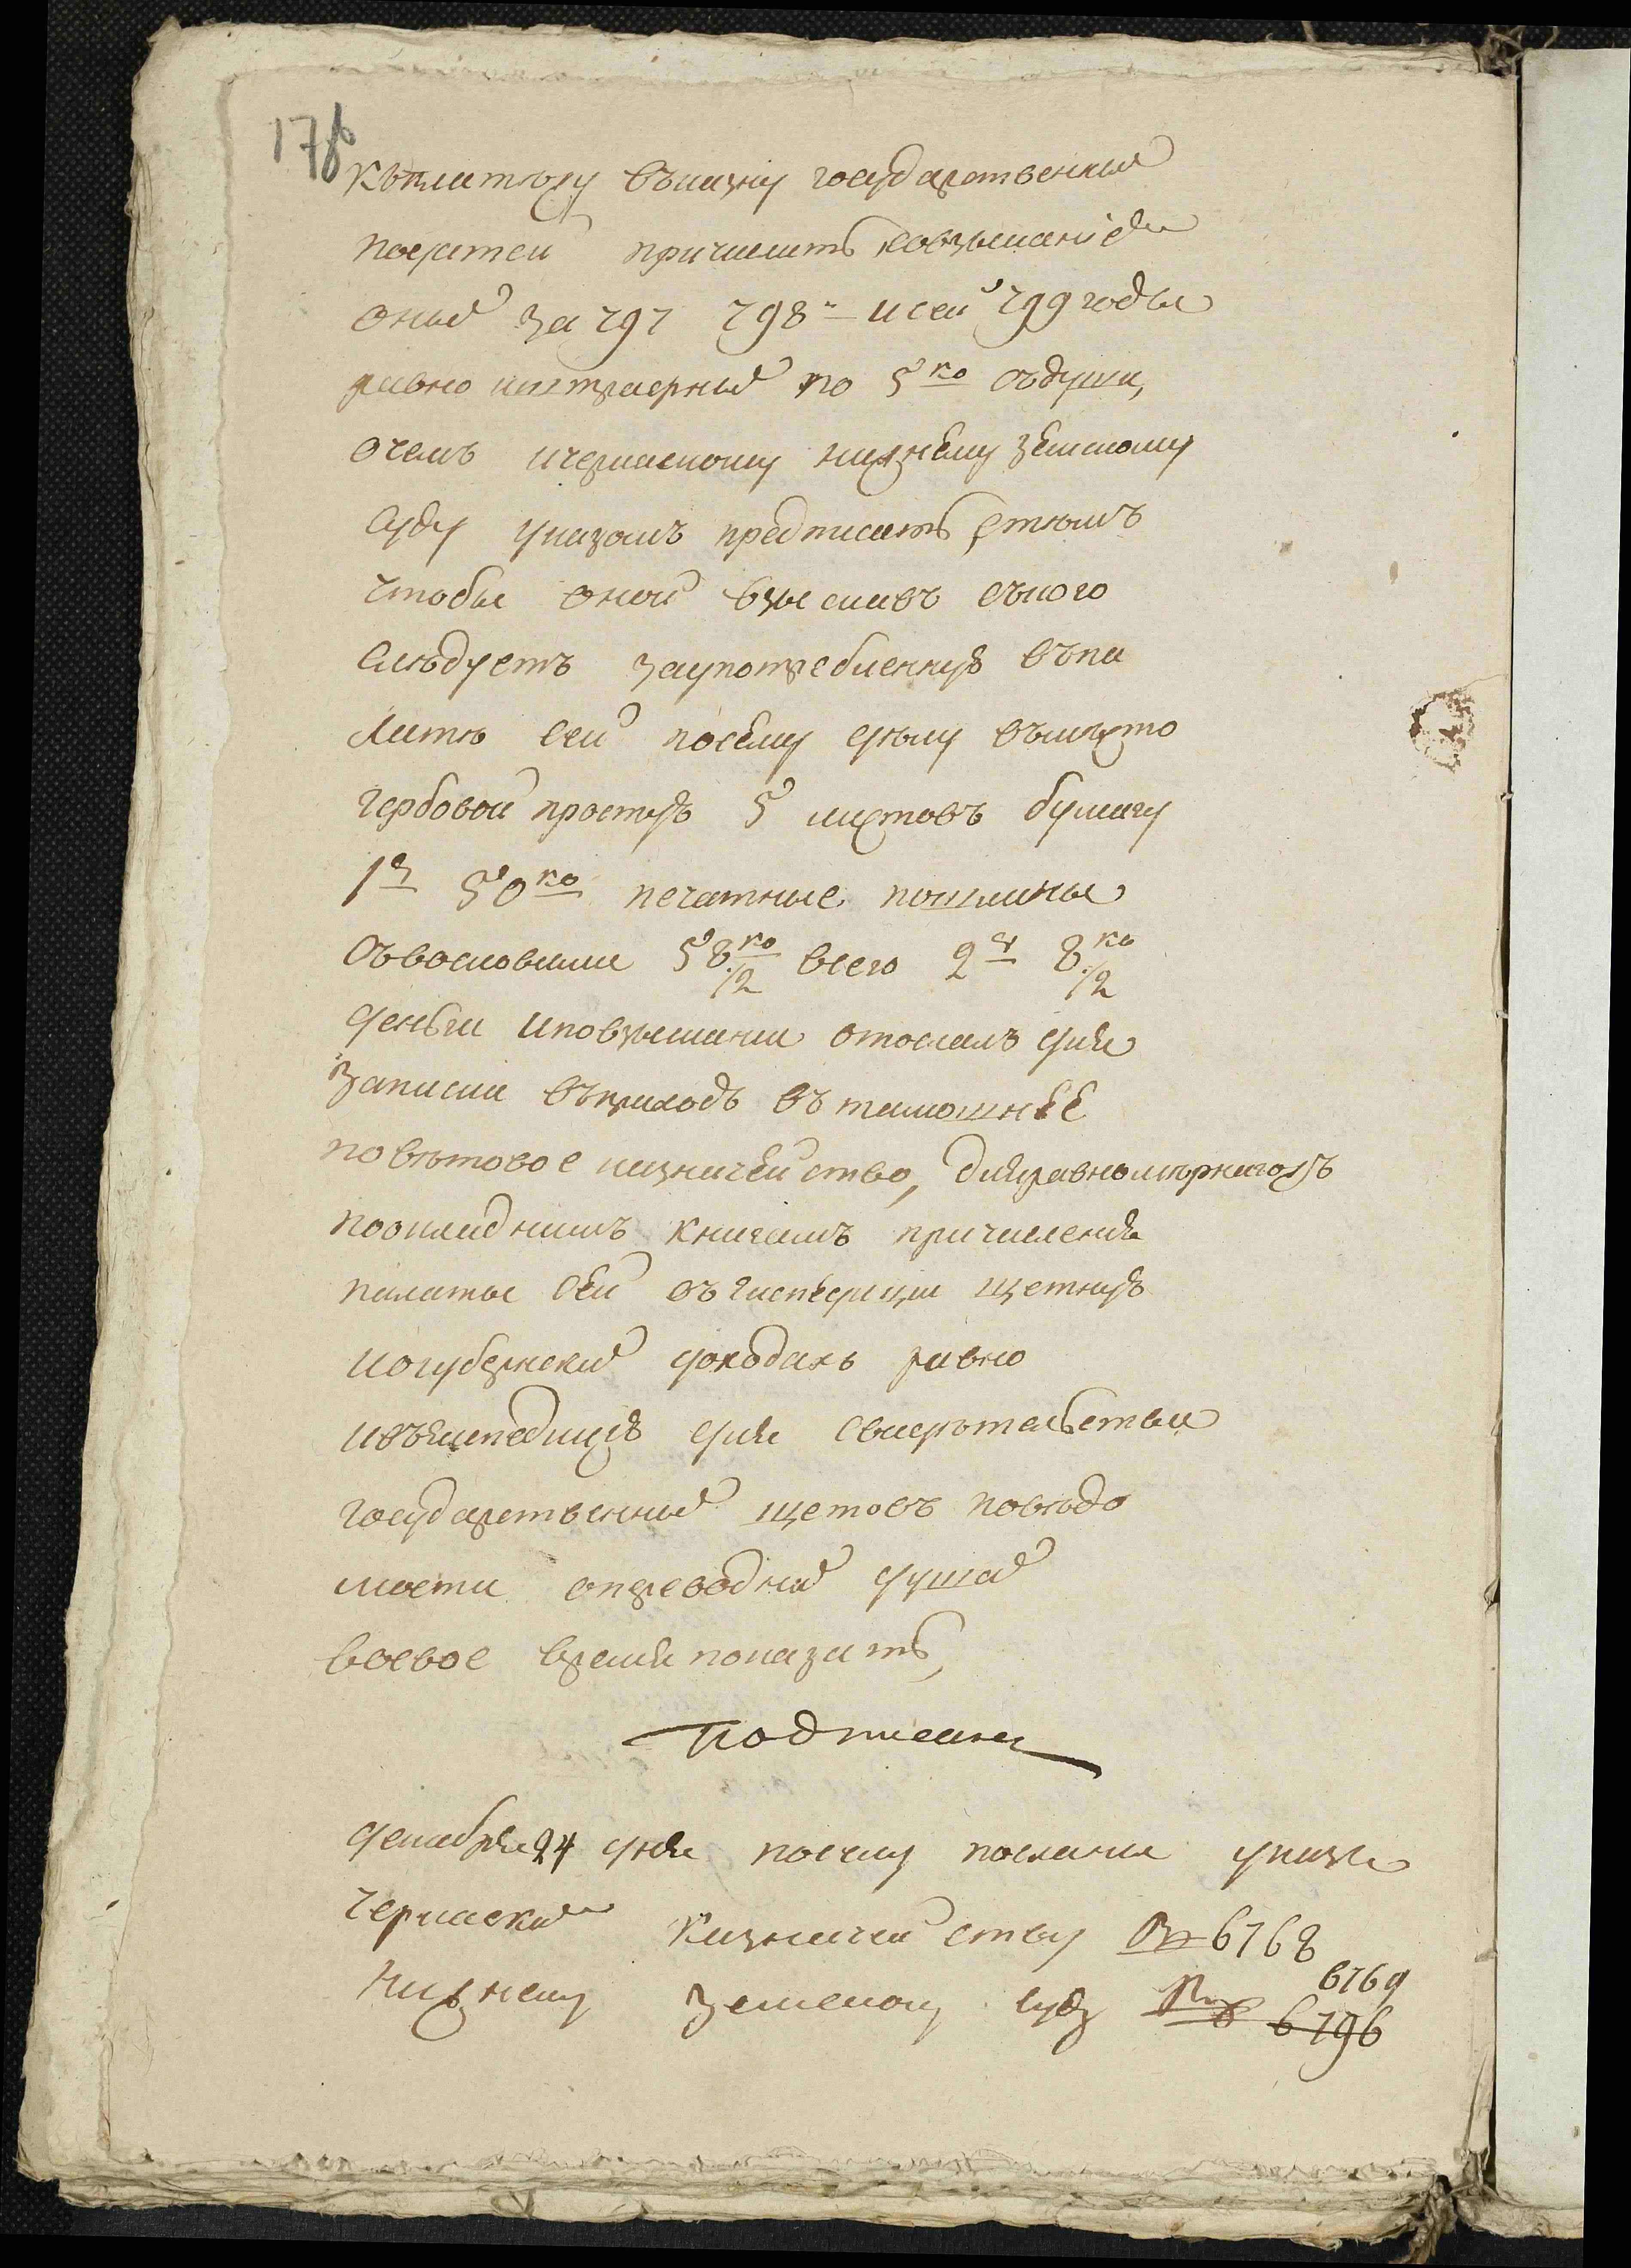 178
Къплатежу въказну государственныхъ
податей причислить ковзысканію
оныхъ за 797 798й исей 799 годы
равно ипотраернымъ по 5ко съдуши,
очемъ ичеркаскому нижнему земскому
суду указомъ предписать стемъ
чтобы оной взыскавъ съкого
следуетъ заупотребленную въпа
лате сей посему делу вместо
гербовой простую 5 листовъ бумагу
1р 50ко печатные пошлины
съвосковыми 58ко 1/2 всего 2р 8ко 1/2
деньги иповзыскании отослалъ для
записки въприходъ въ тамошнее
поветовое казначейство, дляравномернагожъ
поокладнымъ книгамъ причисления
палаты сей въ експедиции щетную
иогубернскихъ доходахъ равно
ивъекспедицию для свидетельства
государственныхъ щетовъ поведо
мости опереводныхъ душахъ
восвое время показать,
Подписали
декабря 24 дня посему посланы указы
черкаскимъ казначейству № 6768
нижнему земскому суду № 6769
6796